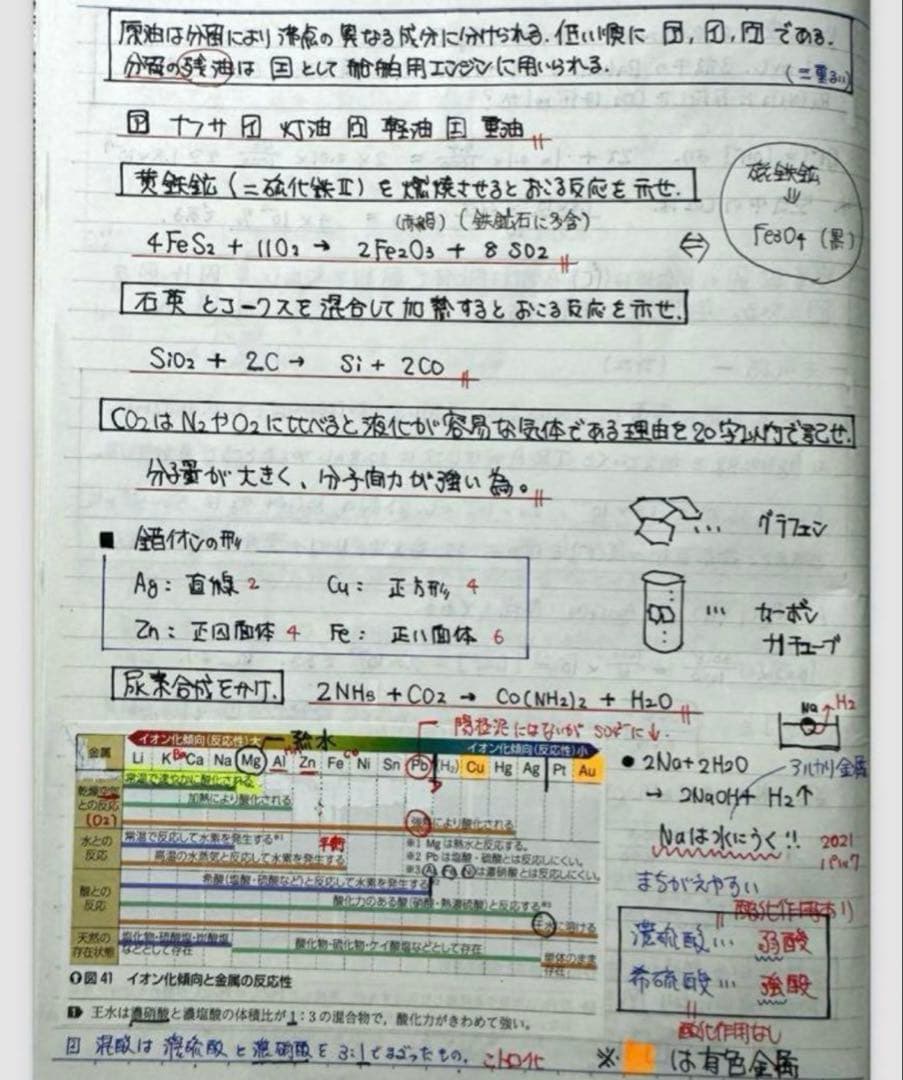 原油は分留により沸点の異なる成分に分けられる。低い順に ア, イ, ウ である。
分留の残油は エ として船舶用エンジンに用いられる。
(=重るい)
ア ナフサ イ 灯油 ウ 軽油 エ 重油
黄鉄鉱 (二硫化鉄Ⅱ) を燃焼させるとおこる反応を示せ.
磁鉄鉱
⇓
Fe3O4 (黒)
(赤褐) (鉄鉱石に多含)
4FeS2 + 11O2 → 2Fe2O3 + 8SO2
⇔
石英とコークスを混合して加熱するとおこる反応を示せ.
SiO2 + 2C → Si + 2CO
CO2はN2やO2に比べると液化が容易な気体である理由を20字以内で記せ.
分子量が大きく、分子間力が強い為。
… グラフェン
■ 錯イオンの形
Ag: 直線 2 Cu: 正方形 4
Zn: 正四面体 4 Fe: 正八面体 6
… カーボンナノチューブ
尿素合成をかけ. 2NH3 + CO2 → CO(NH2)2 + H2O
Na H2
陽極泥にはないが SO4²⁻に↓
熱水
イオン化傾向(反応性)大 イオン化傾向(反応性)小
金属 Li K Ca Na Mg Al Zn Fe Ni Sn Pb (H2) Cu Hg Ag Pt Au
Ba
Co
常温で速やかに酸化される
乾燥空気との反応
(O2)
加熱により酸化される
強熱により酸化される
水との反応
常温で反応して水素を発生する※1
高温の水蒸気と反応して水素を発生する
平衡
※1 Mgは熱水と反応する。
※2 Pbは塩酸・硫酸とは反応しにくい。
※3 Al Fe Niは濃硝酸とは反応しにくい。
酸との反応
希酸(塩酸・硫酸など)と反応して水素を発生する※2
酸化力のある酸(硝酸・熱濃硫酸)と反応する※3
王水に溶ける
天然の存在状態
塩化物・硫酸塩・炭酸塩などとして存在
酸化物・硫化物・ケイ酸塩などとして存在
単体のまま存在
図41 イオン化傾向と金属の反応性
1 王水は濃硝酸と濃塩酸の体積比が1:3の混合物で，酸化力がきわめて強い。
混酸は濃硫酸と濃硝酸を3:1でまざったもの.
● 2Na+2H2O
アルカリ金属
→ 2NaOH + H2↑
Naは水にうく!!
2021
パック
まちがえやすい
酸化作用あり
濃硫酸… 弱酸
希硫酸… 強酸
酸化作用なし
※ は有色金属